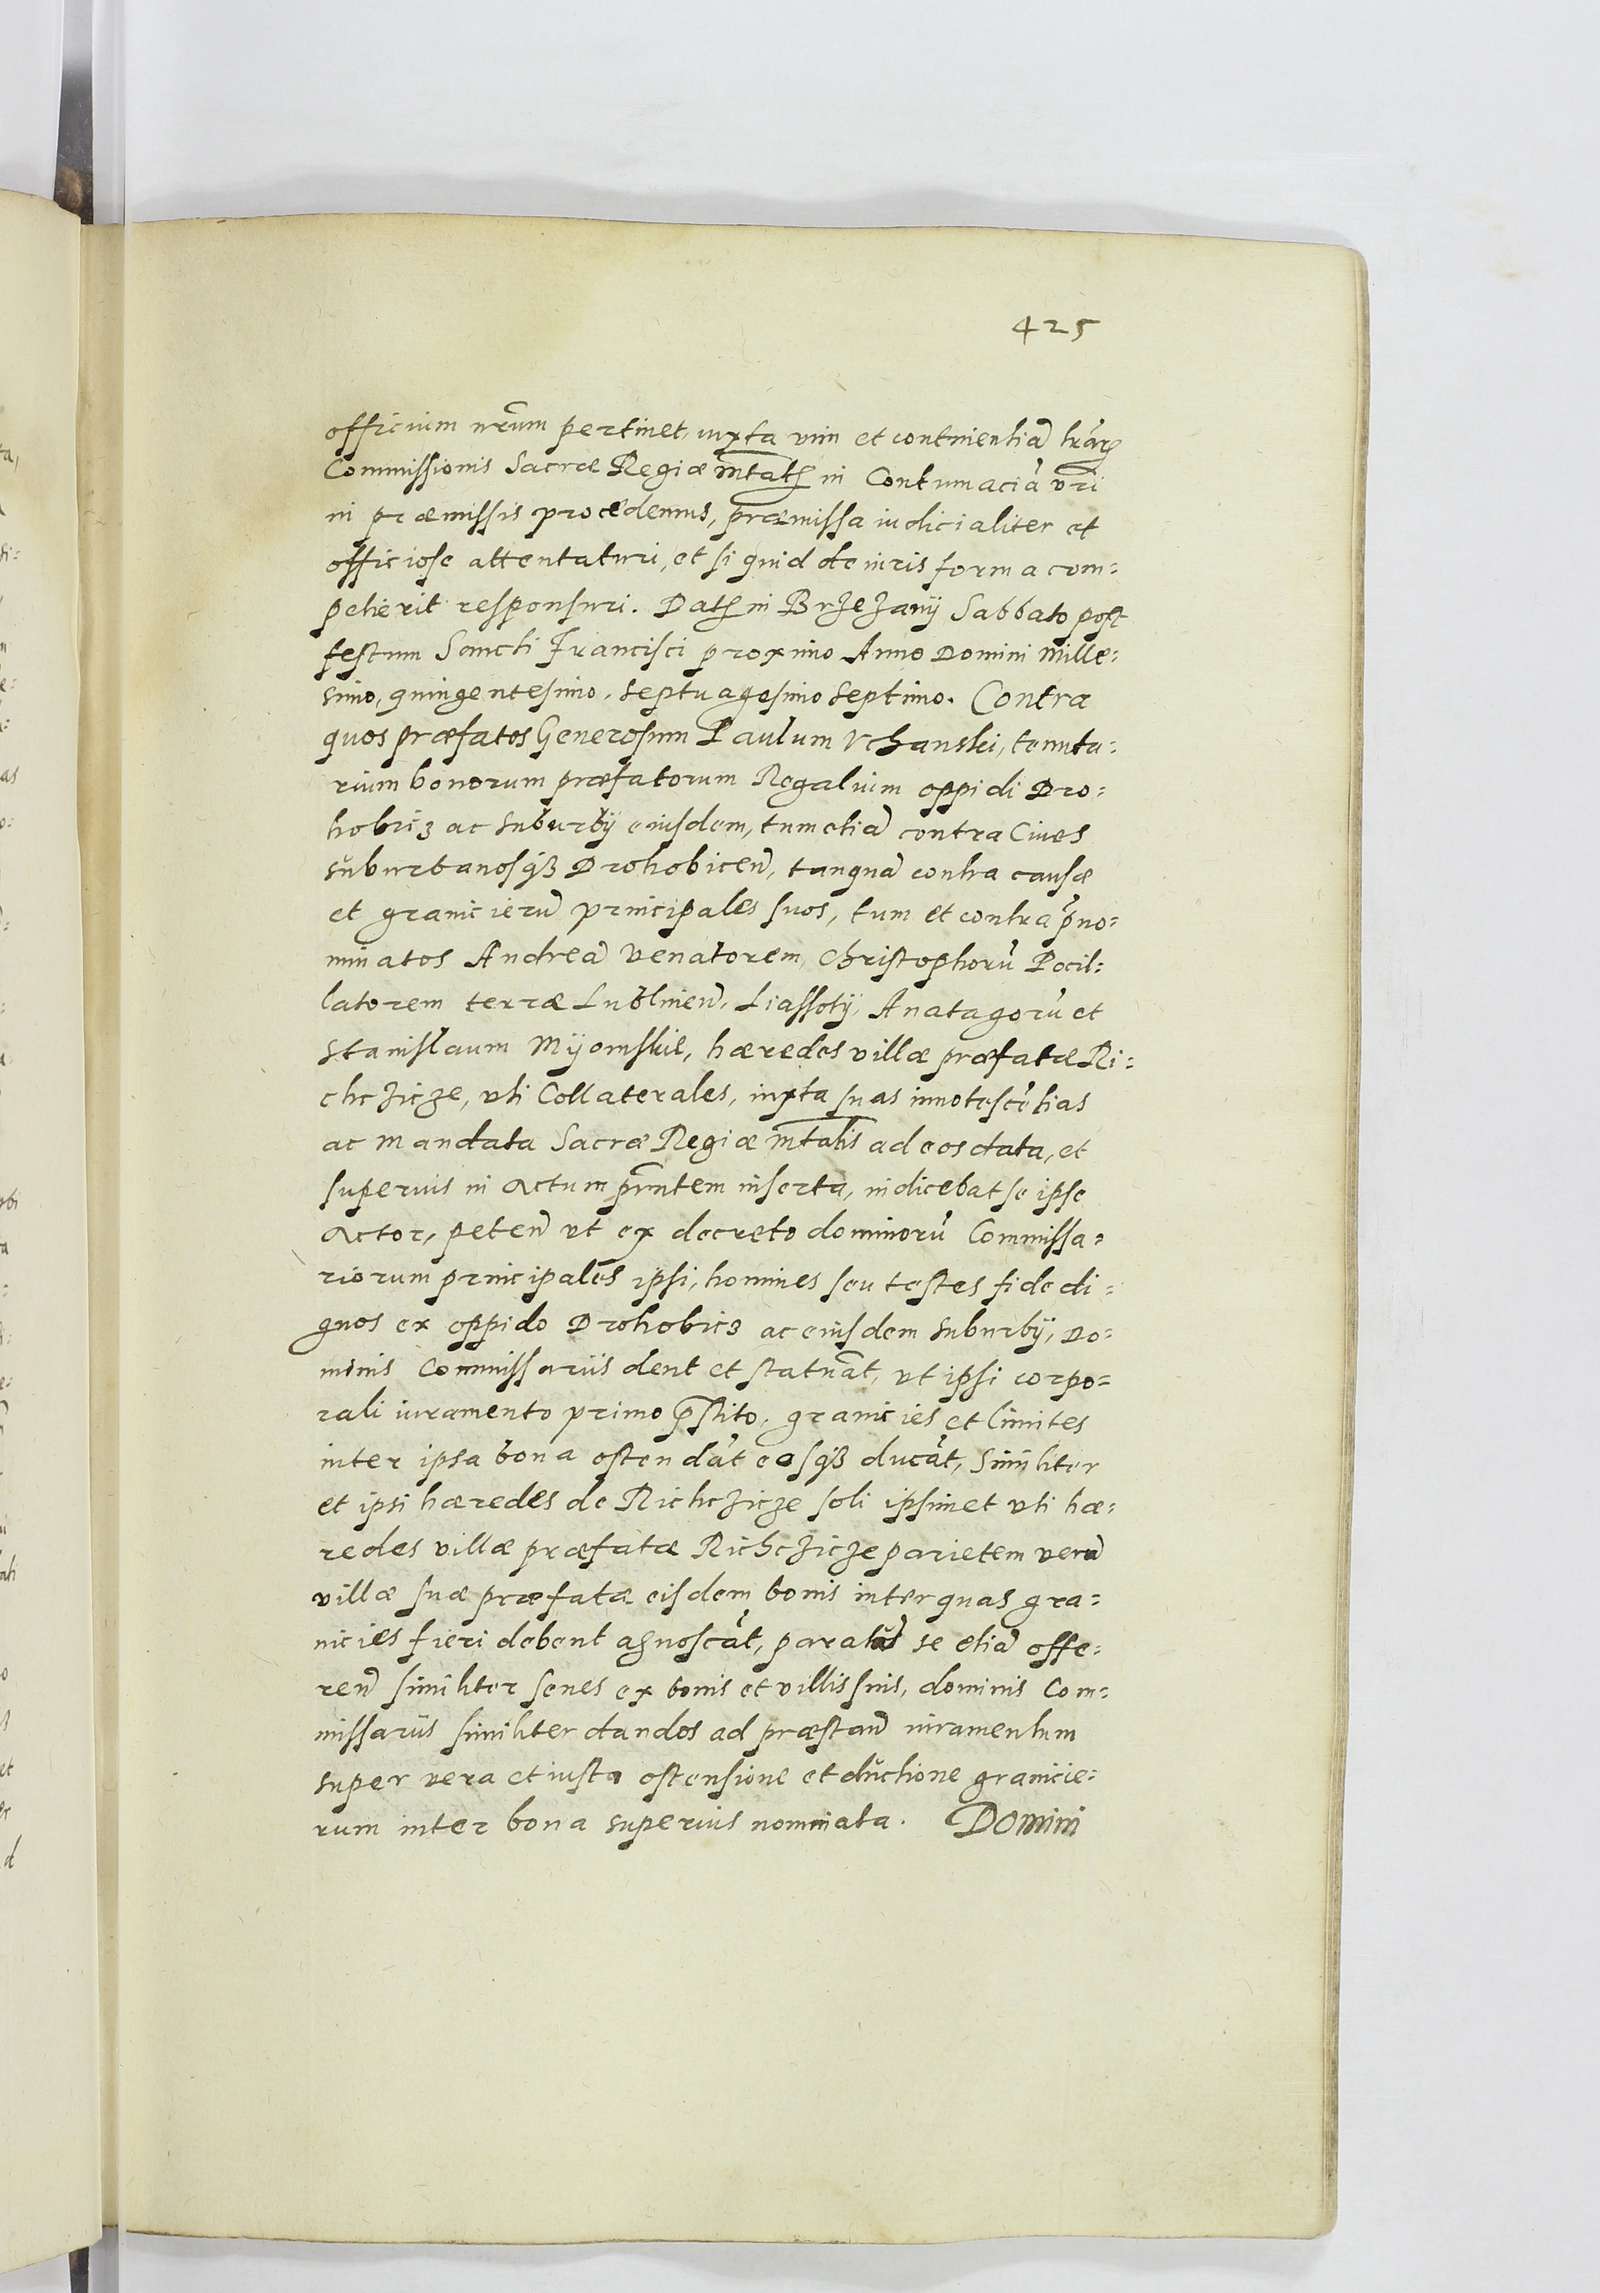 425
officium nr̃um pertinet, iuxta vim et continentiã lr̃arum
Commissionis Sacræ Regiæ Mtatis in Contumaciã vr̃i
in præmissis procedemus, præmissa iudicialiter et
officiose attentaturi, et si quid de iuris forma com=
petierit responsuri. Datis in Brzezany Sabbato post
festum Sancti Francisci proximo Anno Domini Mille=
simo, quingentesimo, septuagesimo septimo. Contra
quos præfatos Generosum Paulum Vchanski, tenuta=
rium bonorum præfatorum Regalium oppidi Dro=
hobicz ac suburbÿ eiusdem, tum etiã contra Ciues
suburbanosq₃ Drohobiceñ, tanquã contra causæ
et granicierũ principales suos, tum et contra p̃no=
minatos Andreã Venatorem, Christophorũ Pocil=
latorem terræ Lublineñ, Liassotÿ, Anatagorũ et
Stanislaum Mÿomskie, hæredes villæ præfatæ Ri=
chczicze, vti Collaterales, iuxta suas innotescẽtias
ac Mandata Sacræ Regiæ Mtatis ad eos data, et
superius in Actum pr̃ntem inserta, indicebat se ipse
Actor, peteñ vt ex decreto dominorũ Commissa=
riorum principales ipsi, homines seu testes fide di=
gnos ex oppido Drohobicz ac eiusdem suburbÿ, Do=
minis Commissariis dent et statuãt, vt ipsi corpo=
rali iuramento primo p̃stito, granicies et limites
inter ipsa bona ostendãt eosq₃ ducãt, Similiter
et ipsi hæredes de Richczicze soli ipsimet vti hæ=
redes villæ præfatæ Richczicze parietem verũ
villæ suæ præfatæ eisdem bonis inter quas gra=
nicies fieri debent agnoscãt, paratũ se etiã offe=
reñ similiter senes ex bonis et villis suis, dominis Com=
missariis similiter dandos ad præstañ iuramentum
super vera et iusta ostensione et ductione granicie=
rum inter bona superius nominata. Domini